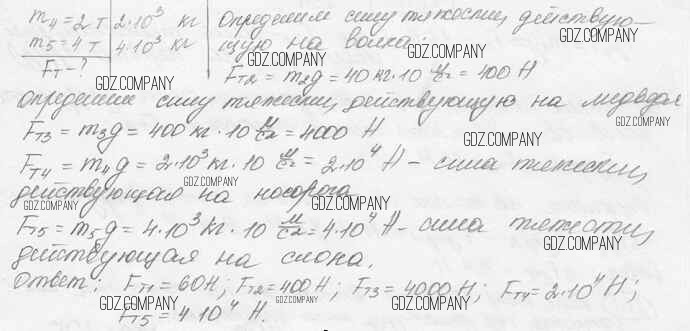 m₄ = 2 т | 2·10³ кг | Определим силу тяжести, действую-
m₅ = 4 т | 4·10³ кг | щую на волка:
Fт - ? | Fт2 = m₂g = 40 кг · 10 м/с² = 400 Н
Определим силу тяжести, действующую на медведя
Fт3 = m₃g = 400 кг · 10 м/с² = 4000 Н
Fт4 = m₄g = 2·10³ кг · 10 м/с² = 2·10⁴ Н – сила тяжести,
действующая на носорога
Fт5 = m₅g = 4·10³ кг · 10 м/с² = 4·10⁴ Н – сила тяжести,
действующая на слона.
Ответ: Fт1 = 60 Н; Fт2 = 400 Н; Fт3 = 4000 Н; Fт4 = 2·10⁴ Н;
Fт5 = 4·10⁴ Н.
GDZ.COMPANY
GDZ.COMPANY
GDZ.COMPANY
GDZ.COMPANY
GDZ.COMPANY
GDZ.COMPANY
GDZ.COMPANY
GDZ.COMPANY
GDZ.COMPANY
GDZ.COMPANY
GDZ.COMPANY
GDZ.COMPANY
GDZ.COMPANY
GDZ.COMPANY